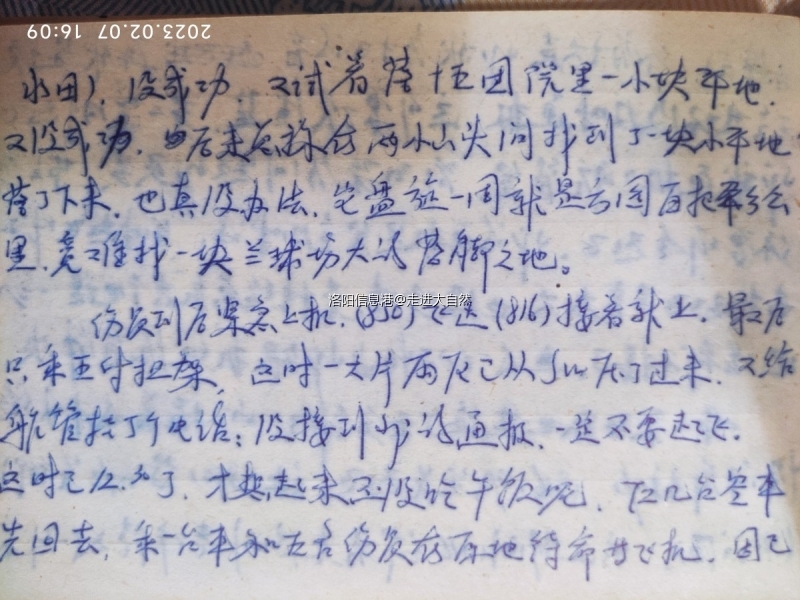 2023.02.07 16:09
水田)，没成功，又试着落十四团院里一小块平地，
又没成功，后来总算在两小山头间找到了一块小平地
落了下来，也真没办法，它盘旋一周就是方圆百把平方公
里，竟难找一块兰球场大的落脚之地。
洛阳信息港@走进大自然
伤员到后紧急上机，(850)走运(816)接着就上，最后
只乘五付担架，这时一大片雨灰已从压了过来，又给
航管挂了个电话：没接到我的通报，一定不要起飞。
这时已12.多了，才想起来还没吃午饭呢，几台空车
先回去，来一台车和五名伤员在原地待命等飞机，因已